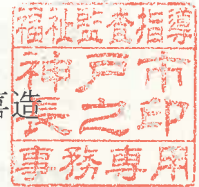 福祉監査指導
神戸市
喜造
長之印
事務専用